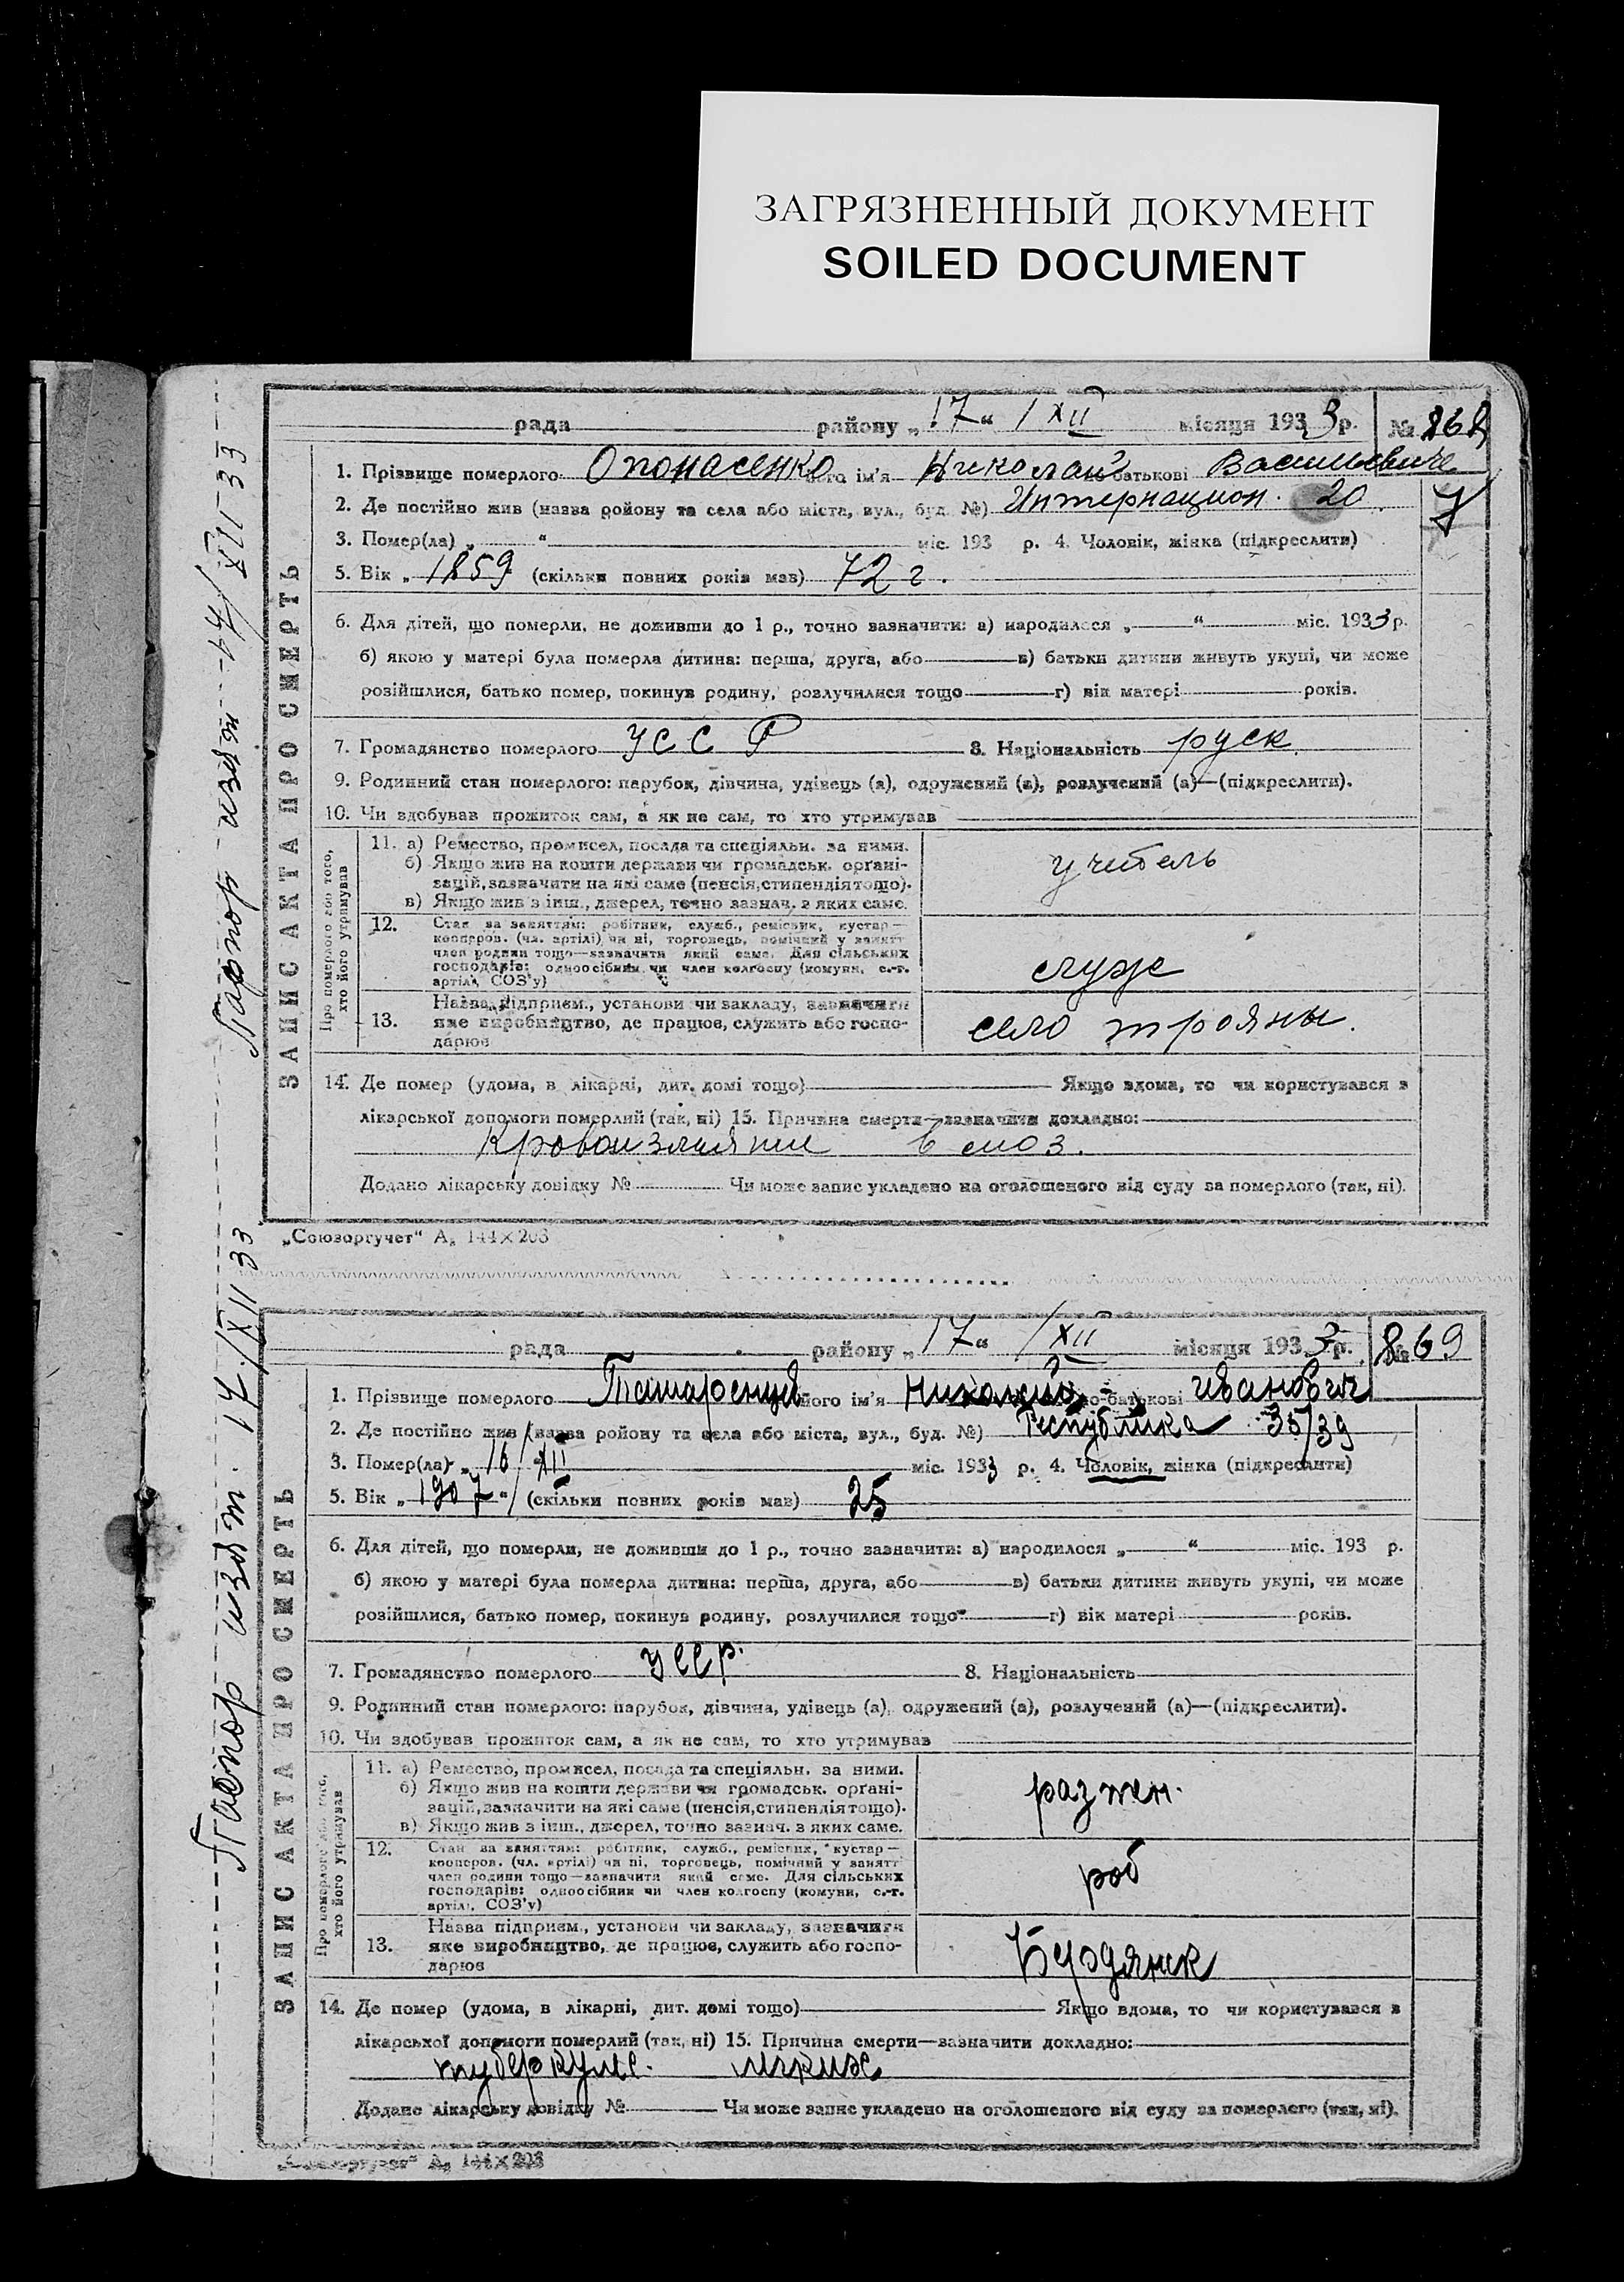 ЗАГРЯЗНЕННЫЙ ДОКУМЕНТ
SOILED DOCUMENT
рада района „17“ / XII місяця 1933 р. № 868
1. Прізвище померлого Опонасенко його ім'я Николай по-батькові Васильевич
2. Де постійно жив (назва району та села або міста, вул., буд. №) Интернацион. 20
3. Помер(ла) „ “ міс. 193 р. 4. Чоловік, жінка (підкреслити)
5. Вік „1859 (скільки повних років мав) 72 г.
6. Для дітей, що померли, не доживши до 1 р., точно зазначити: а) народилося „ “ міс. 1933 р.
б) якою у матері була померла дитина: перша, друга, або в) батьки дитини живуть укупі, чи може
розійшлися, батько помер, покинув родину, розлучилися тощо г) вік матері років.
7. Громадянство померлого УССР 8. Національність руск.
9. Родинний стан померлого: парубок, дівчина, удівець (а), одружений (а), розлучений (а)—(підкреслити).
10. Чи здобував прожиток сам, а як не сам, то хто утримував
Про померлого або того, хто його утримував
11. а) Ремество, промисел, посада та спеціяльн. за ними.
б) Якщо жив на кошти держави чи громадськ. органі-
зацій, зазначити на які саме (пенсія, стипендія тощо).
в) Якщо жив з інш., джерел, точно зазнач. з яких саме.
учитель
12. Стан за заняттям: робітник, служб., ремісник, кустар—
кооперов. (чл. артілі) чи ні, торговець, помічний у занятт
член родини тощо—зазначити який саме. Для сільських
господарів: одноосібник чи член колгоспу (комуни, с.-г.
артілі, СОЗ'у)
служ
13. Назва підприєм., установи чи закладу, зазначити
яке виробництво, де працює, служить або госпо-
дарює
село трояны.
14. Де помер (удома, в лікарні, дит. домі тощо) Якщо вдома, то чи користувався з
лікарської допомоги померлий (так, ні) 15. Причина смерти—зазначити докладно:
Кровоизлияние в моз.
Додано лікарську довідку № Чи може запис укладено на оголошеного від суду за померлого (так, ні).
ЗАПИС АКТА ПРО СМЕРТЬ
Паспор изят 17/XII 33
„Союзоргучет“ А₅ 144×203
рада району „17“ / XII місяця 1933 р. № 869
1. Прізвище померлого Татаренцев його ім'я Николай по-батькові Иванович
2. Де постійно жив (назва району та села або міста, вул., буд. №) Республика 35/39
3. Помер(ла) „16/XII міс. 1933 р. 4. Чоловік, жінка (підкреслити)
5. Вік „1907“ (скільки повних років мав) 25
6. Для дітей, що померли, не доживши до 1 р., точно зазначити: а) народилося „ “ міс. 193 р.
б) якою у матері була померла дитина: перша, друга, або в) батьки дитини живуть укупі, чи може
розійшлися, батько помер, покинув родину, розлучилися тощо г) вік матері років.
7. Громадянство померлого УССР. 8. Національність
9. Родинний стан померлого: парубок, дівчина, удівець (а), одружений (а), розлучений (а)—(підкреслити).
10. Чи здобував прожиток сам, а як не сам, то хто утримував
Про померлого або того, хто його утримував
11. а) Ремество, промисел, посада та спеціяльн. за ними.
б) Якщо жив на кошти держави чи громадськ. органі-
зацій, зазначити на які саме (пенсія, стипендія тощо).
в) Якщо жив з інш., джерел, точно зазнач. з яких саме.
12. Стан за заняттям: робітник, служб., ремісник, кустар—
кооперов. (чл. артілі) чи ні, торговець, помічний у занятт
член родини тощо—зазначити який саме. Для сільських
господарів: одноосібник чи член колгоспу (комуни, с.-г.
артілі, СОЗ'у)
роб
13. Назва підприєм., установи чи закладу, зазначити
яке виробництво, де працює, служить або госпо-
дарює
Бердянск
14. Де помер (удома, в лікарні, дит. домі тощо) Якщо вдома, то чи користувався з
лікарської допомоги померлий (так, ні) 15. Причина смерти—зазначити докладно:
туберкулс.
Додано лікарську довідку № Чи може запис укладено на оголошеного від суду за померлого (так, ні).
ЗАПИС АКТА ПРО СМЕРТЬ
Паспор изят. 17/XII 33
„Союзоргучет“ А₅ 144×203